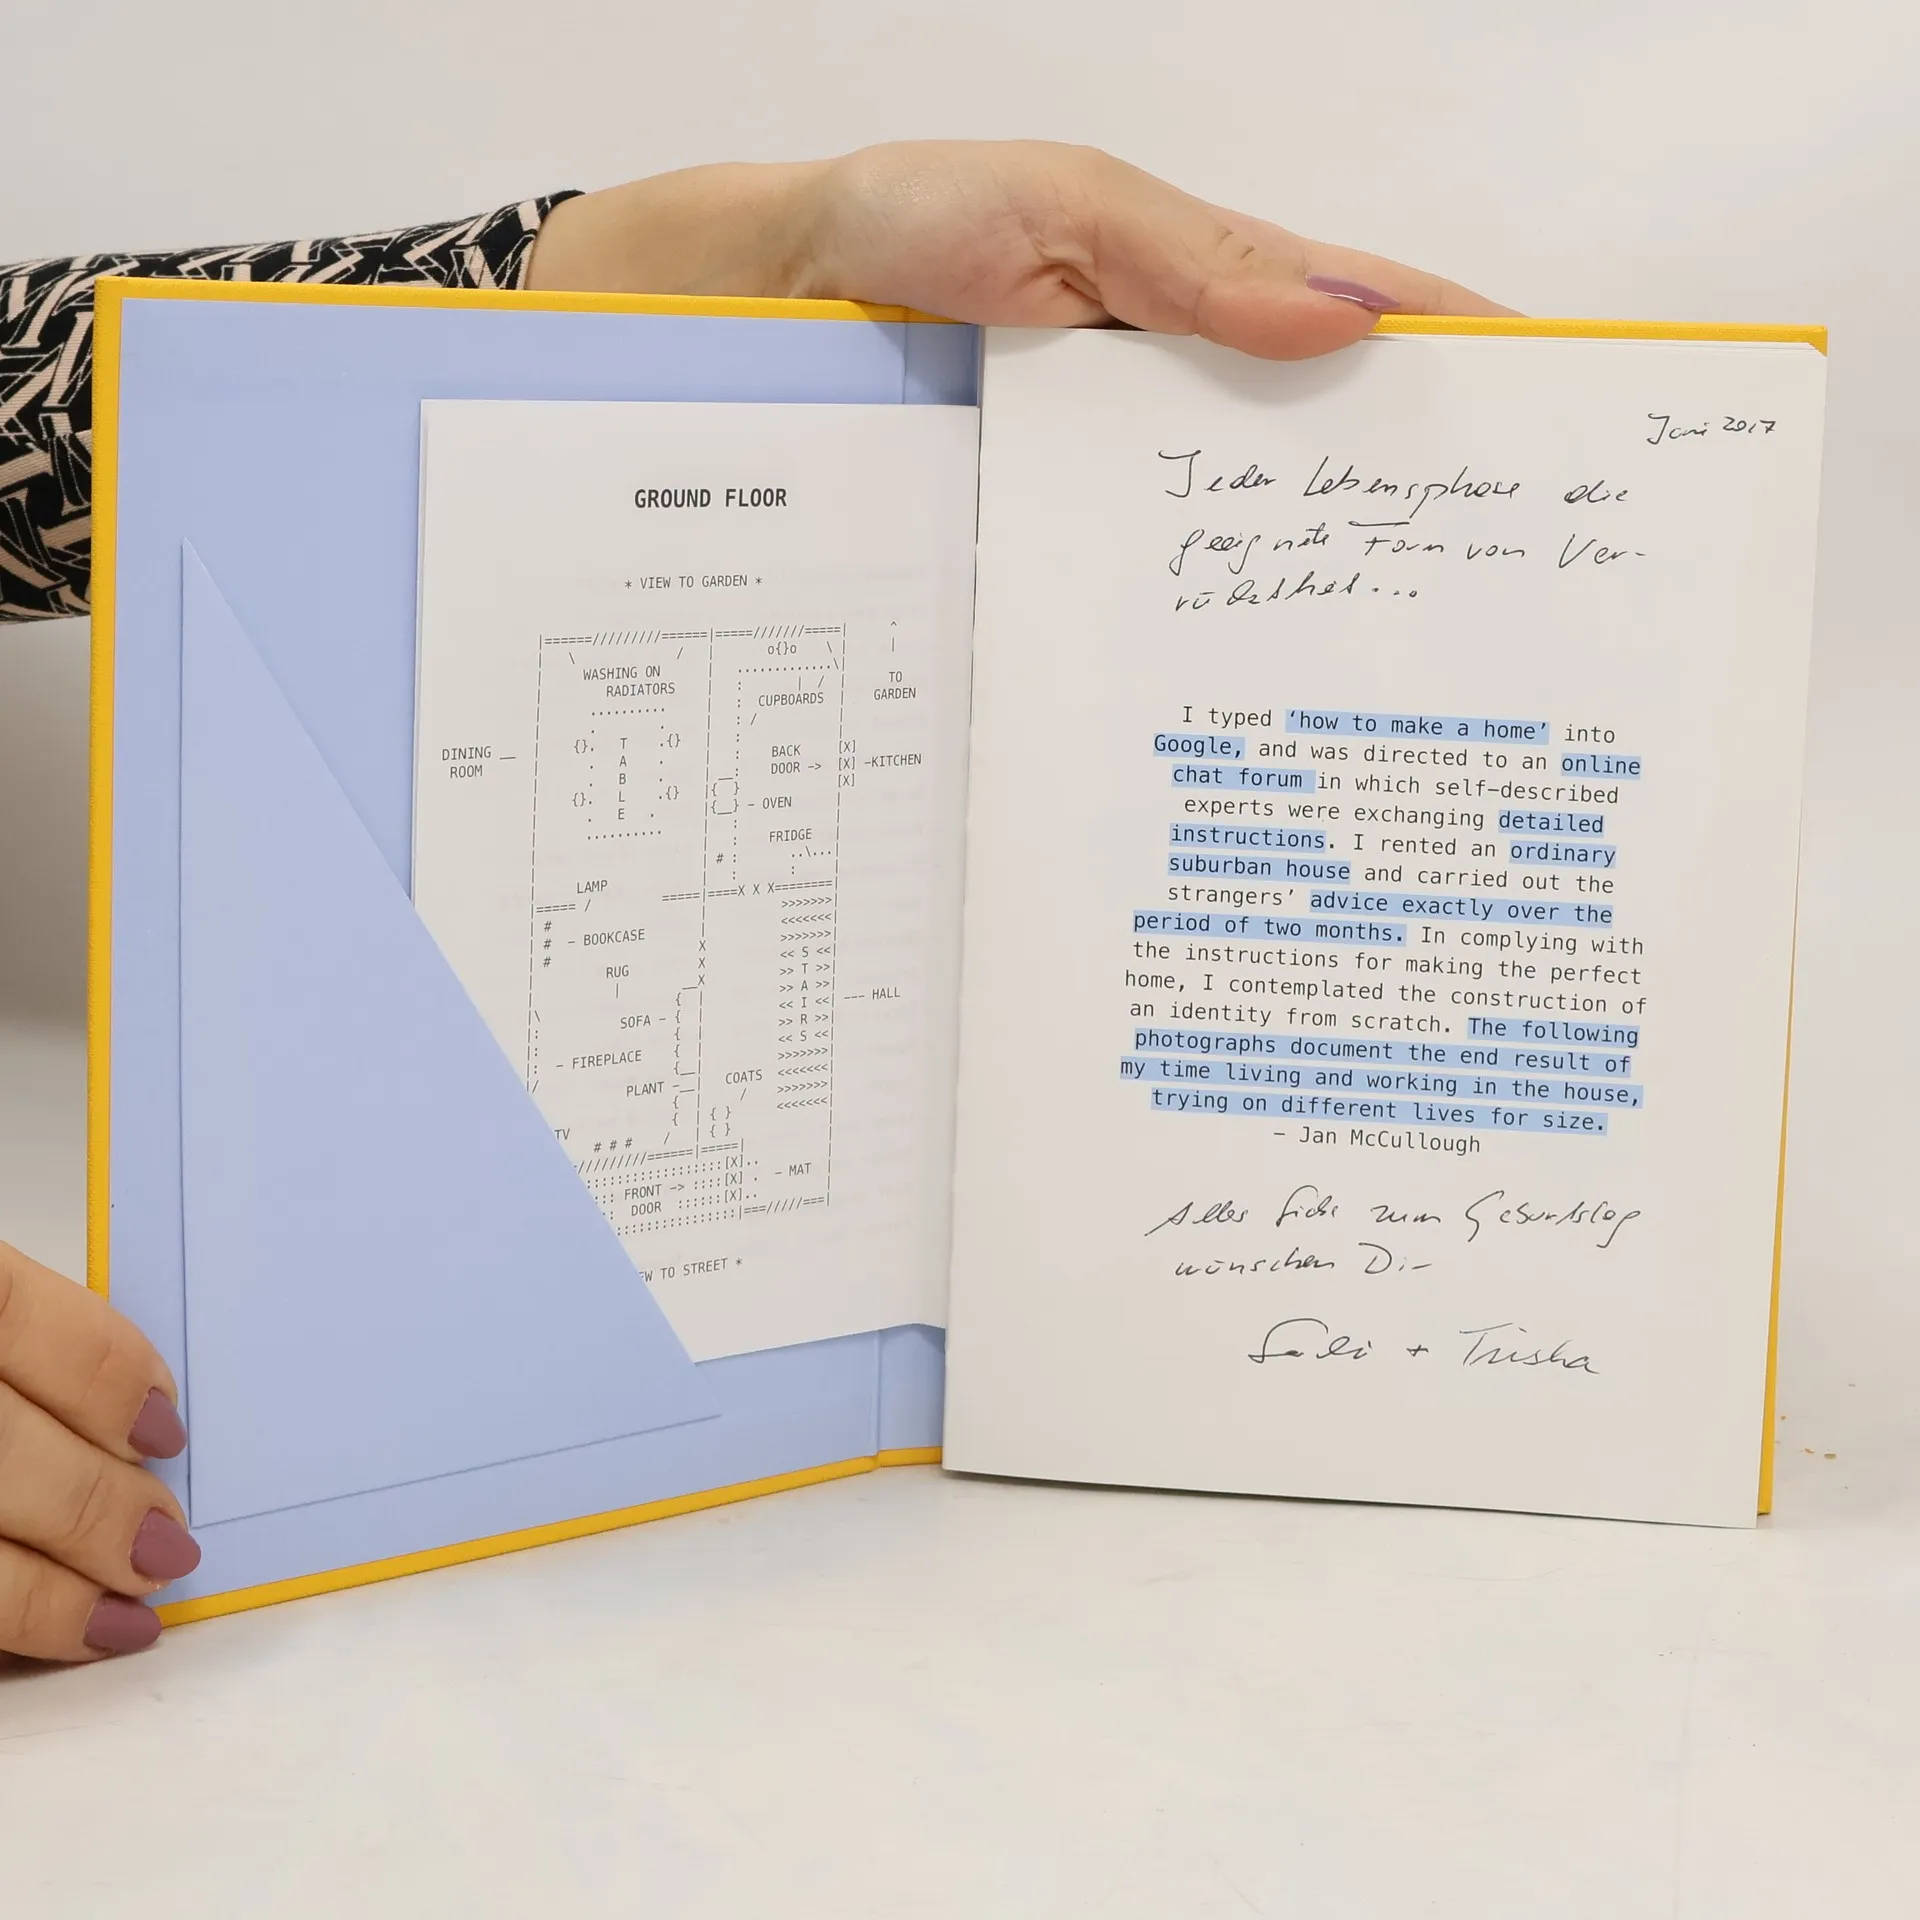 GROUND FLOOR
* VIEW TO GARDEN *
|======/////////======|=====///////=====|
o{}o
WASHING ON
RADIATORS
TO
GARDEN
CUPBOARDS
DINING
ROOM
TABLE
BACK
DOOR ->
[X]
[X] -KITCHEN
[X]
- OVEN
FRIDGE
LAMP
- BOOKCASE
RUG
SOFA -
STAIRS
--- HALL
- FIREPLACE
PLANT -
COATS
TV
- MAT
FRONT ->
DOOR
EW TO STREET *
Juni 2017
Jeder Lebensphase die
geeignete Form von Ver-
rücktheit...
I typed ‘how to make a home’ into
Google, and was directed to an online
chat forum in which self-described
experts were exchanging detailed
instructions. I rented an ordinary
suburban house and carried out the
strangers’ advice exactly over the
period of two months. In complying with
the instructions for making the perfect
home, I contemplated the construction of
an identity from scratch. The following
photographs document the end result of
my time living and working in the house,
trying on different lives for size.
– Jan McCullough
Alles Liebe zum Geburtstag
wünschen Dir
+ Trisha